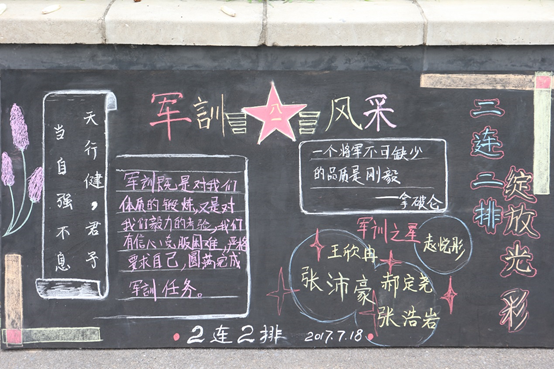 军訓
八一
风采
天行健，君子
当自强不息
军訓既是对我们
体质的锻炼,又是对
我们毅力的考验,我们
有信心克服困难,严格
要求自己,圆满完成
军訓任务。
一个将军不可缺少
的品质是刚毅
——拿破仑
军训之星
王欣冉
赵悦彤
张沛豪
郝定尧
张浩岩
二连二排
绽放光彩
2连2排 2017.7.18